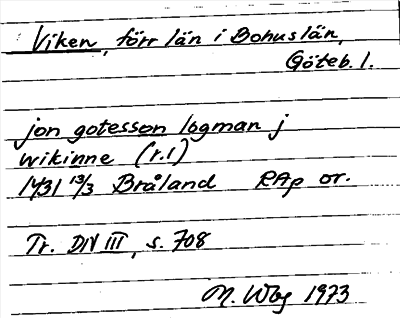 Viken, förr län i Bohuslän,
Göteb. l.
jon gotesson logman j
wikinne (r.1)
1431 13/3 Bråland RAp or.
Tr. DN III, s. 708
M. Wbg 1973